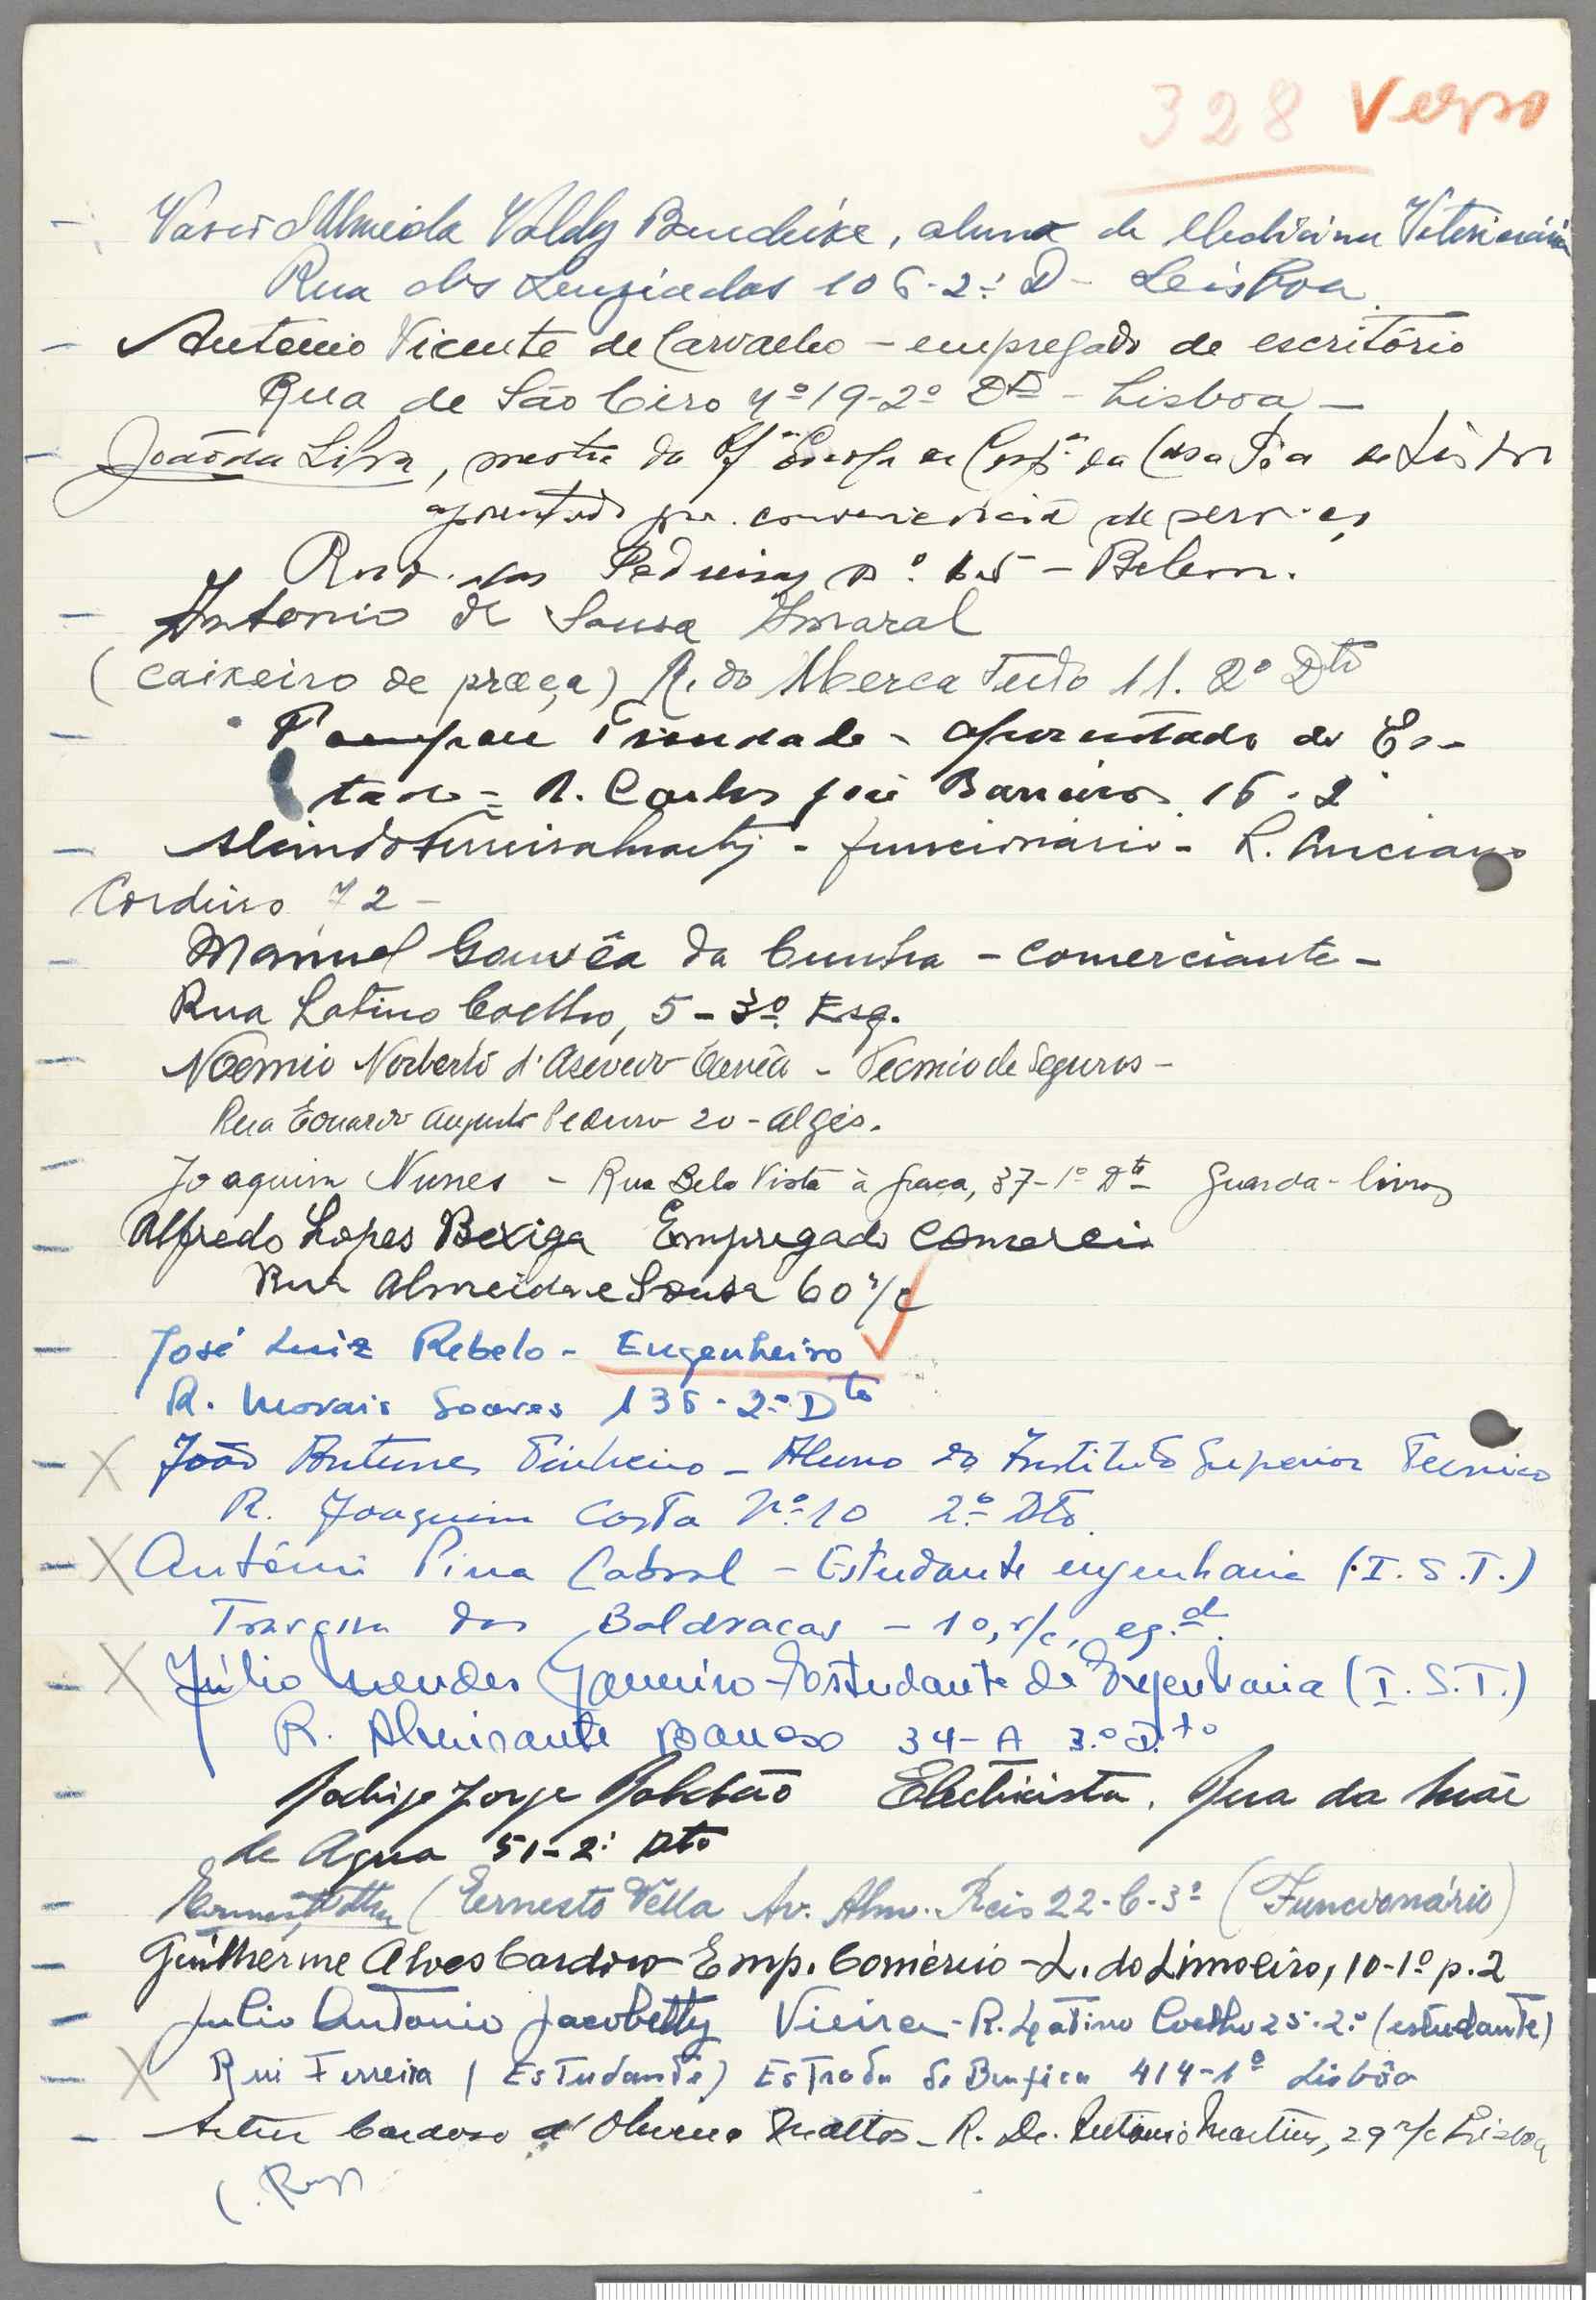 328 Verso
Vasco d'Almeida Valdez, aluno de Medicina Veterinária
Rua dos Lusíadas 106-2º D - Lisboa
António Vicente de Carvalho - empregado de escritório
Rua de São Ciro nº 19-2º Dto - Lisboa -
João da Silva, mestre da da Casa Pia de Lisboa
aposentado por conveniencia de serviço
Rua das Pedreiras nº 65 - Belem.
Antonio de Sousa Amaral
(caixeiro de praça) R. do Merca Tudo 11. 2º Dto
Trindade - aposentado do Es-
tado - R. Carlos José Barreiros 16-2º
Alindo Ferreira Martins - funcionário - R. Luciano
Cordeiro 72 -
Manuel Gouvêa da Cunha - comerciante -
Rua Latino Coelho, 5 - 3º Esq.
Noémio Norberto d'Azevedo Corrêa - Tecnico de Seguros -
Rua Eduardo Augusto Pedroso 20 - Algés.
Joaquim Nunes - Rua Bela Vista à Graça, 37-1º Dto Guarda-livros
Alfredo Lopes Bexiga Empregado Comercio
Rua Almeida e Sousa 60 r/c
José Luiz Rebelo - Engenheiro
R. Morais Soares 136-2º Dto
João Antunes Pinheiro - Aluno do Instituto Superior Tecnico
R. Joaquim Costa Nº 10 2º Dto.
António Pina Cabral - Estudante engenharia (I.S.T.)
Travessa das Baldracas - 10, r/c, eq.d.
Júlio Mendes Janeiro - Estudante de Engenharia (I.S.T.)
R. Almirante Barroso 34-A 3.º D.to
Rodrigo Jorge Electricista. Rua da Mãe
de Agua 51-2º Dto
(Ernesto Vella Av. Alm. Reis 22-C-3º (Funcionário)
Guilherme Alves Cardoso - Emp. Comércio - L. do Limoeiro, 10-1º p.2
Julio Antonio Jacobetty Vieira - R. Latino Coelho 25-2.º (estudante)
Rui Ferreira (Estudante) Estrada de Benfica 414-1º Lisbôa
Artur Cardoso d'Oliveira Mattos - R. Dr. António Martins, 29 r/c Lisboa